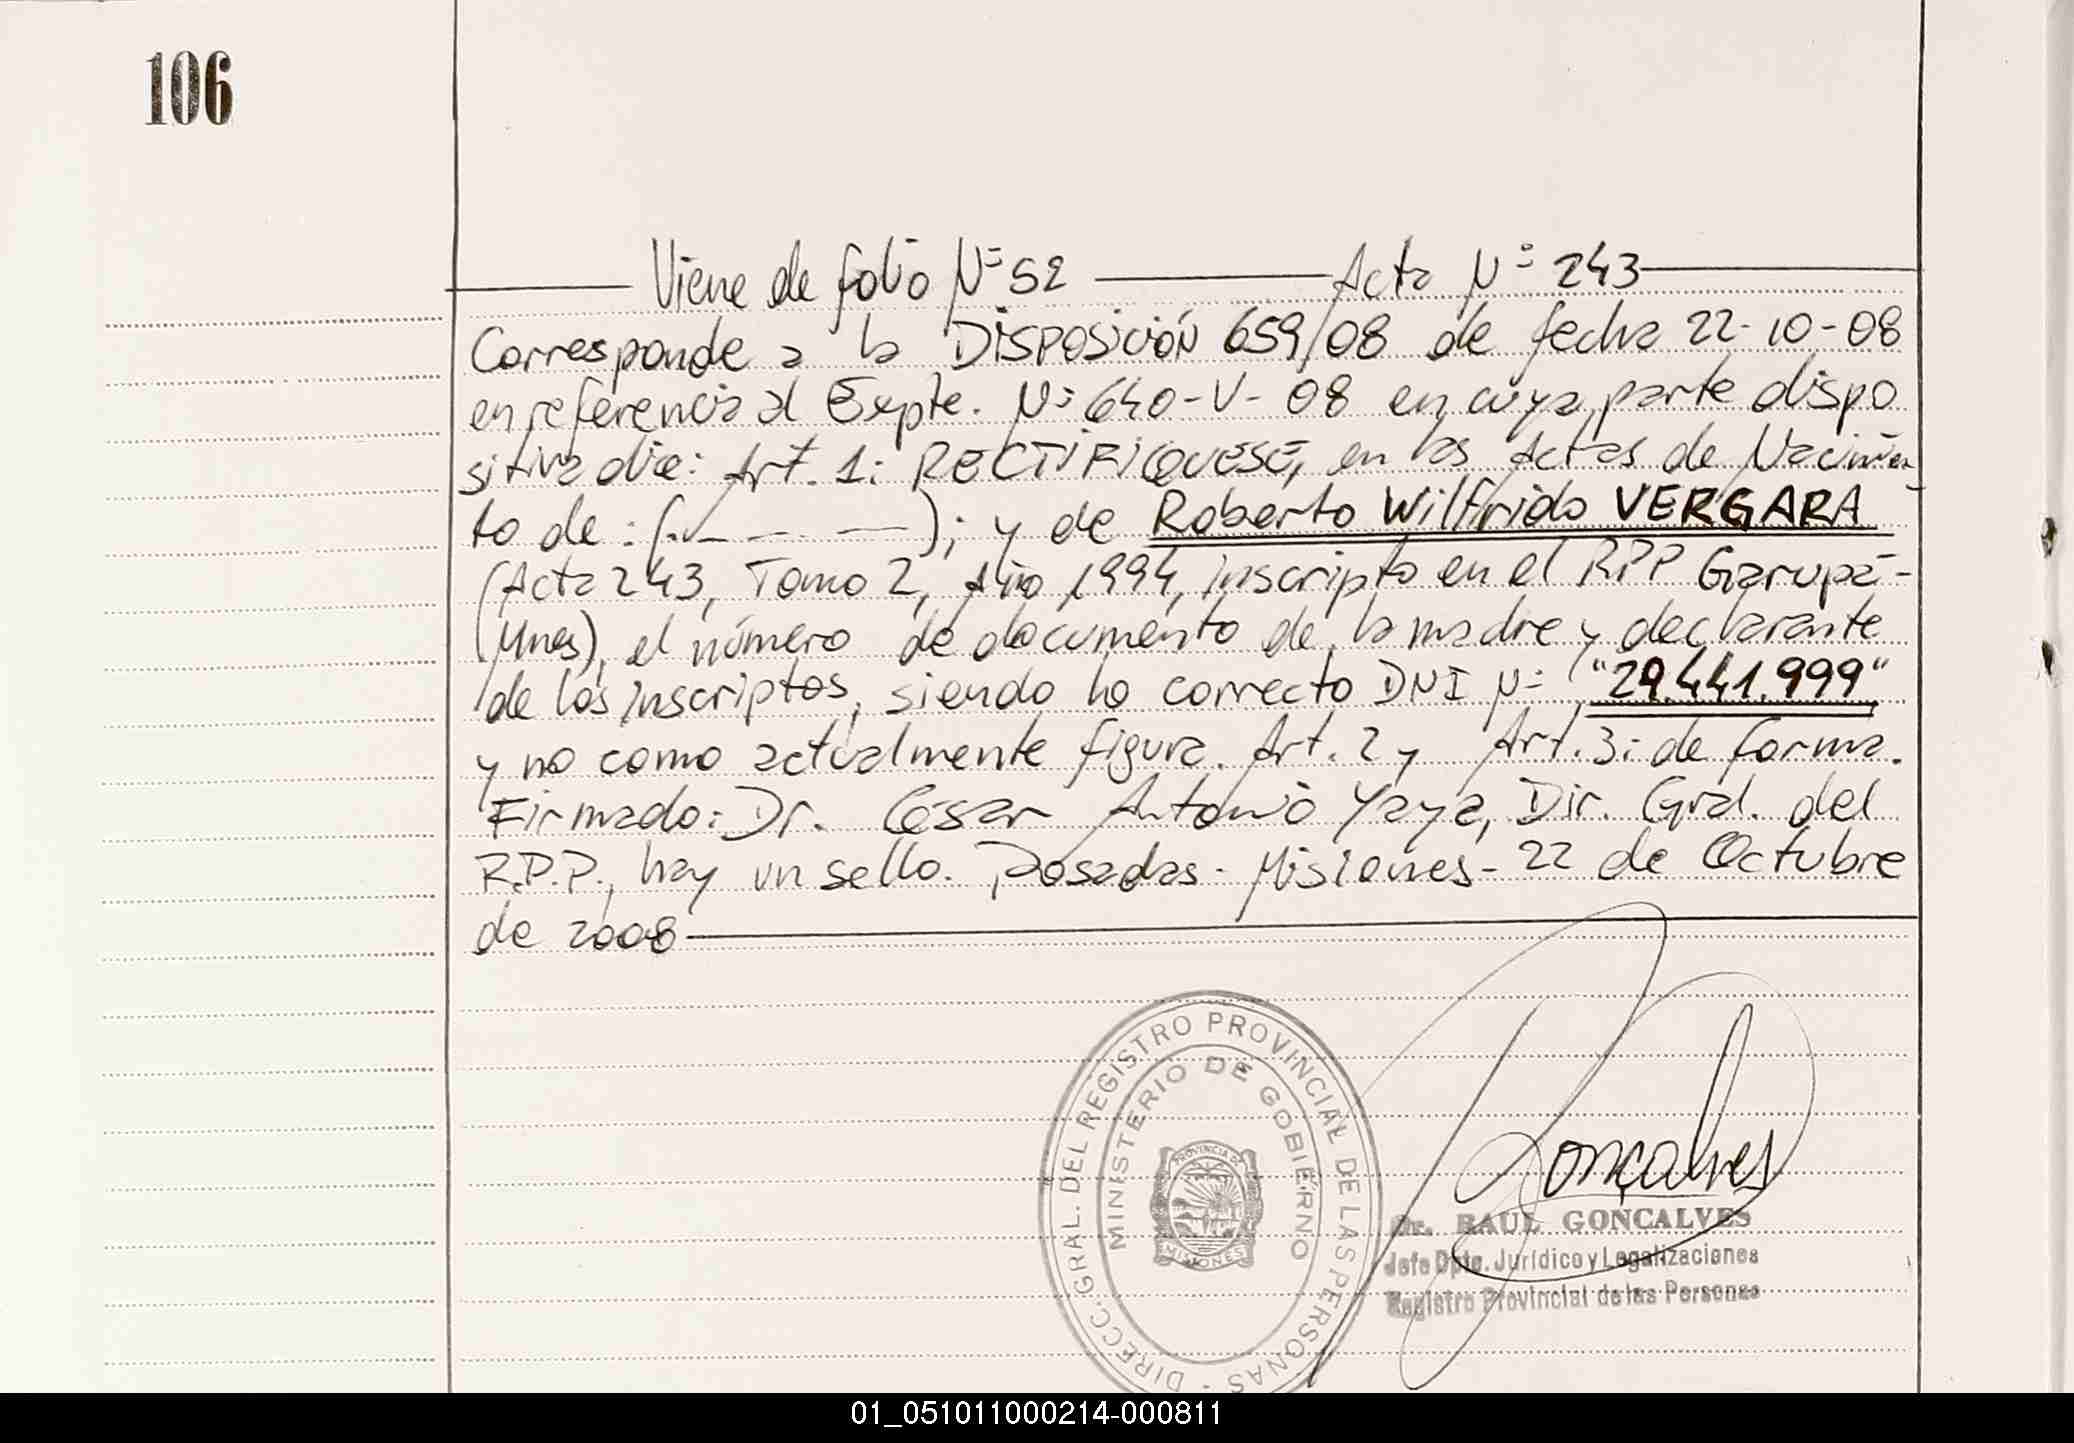 106
Viene de folio Nº 52 Acta Nº 243
Corresponde a la DISPOSICIÓN 659/08 de fecha 22-10-08
en referencia al Expte. Nº 640-V-08 en cuya parte dispo
sitiva dice: Art. 1: RECTIFIQUESE, en las Actas de Nacimien
to de: (.- - - -); y de Roberto Wilfrido VERGARA
(Acta 243, Tomo 2, Año 1994, inscripto en el RPP Garupá-
Mnes), el número de documento de la madre y declarante
de los inscriptos, siendo lo correcto DNI Nº "29.441.999"
y no como actualmente figura. Art. 2 y Art. 3: de forma.
Firmado: Dr. César Antonio Yaya, Dir. Gral. del
R.P.P., hay un sello. Posadas - Misiones - 22 de Octubre
de 2008
DIRECC. GRAL. DEL REGISTRO PROVINCIAL DE LAS PERSONAS -
MINISTERIO DE GOBIERNO
PROVINCIA DE
MISIONES
Gonçalves
Dr. RAUL GONCALVES
Jefe Dpto. Jurídico y Legalizaciones
Registro Provincial de las Personas
01_051011000214-000811